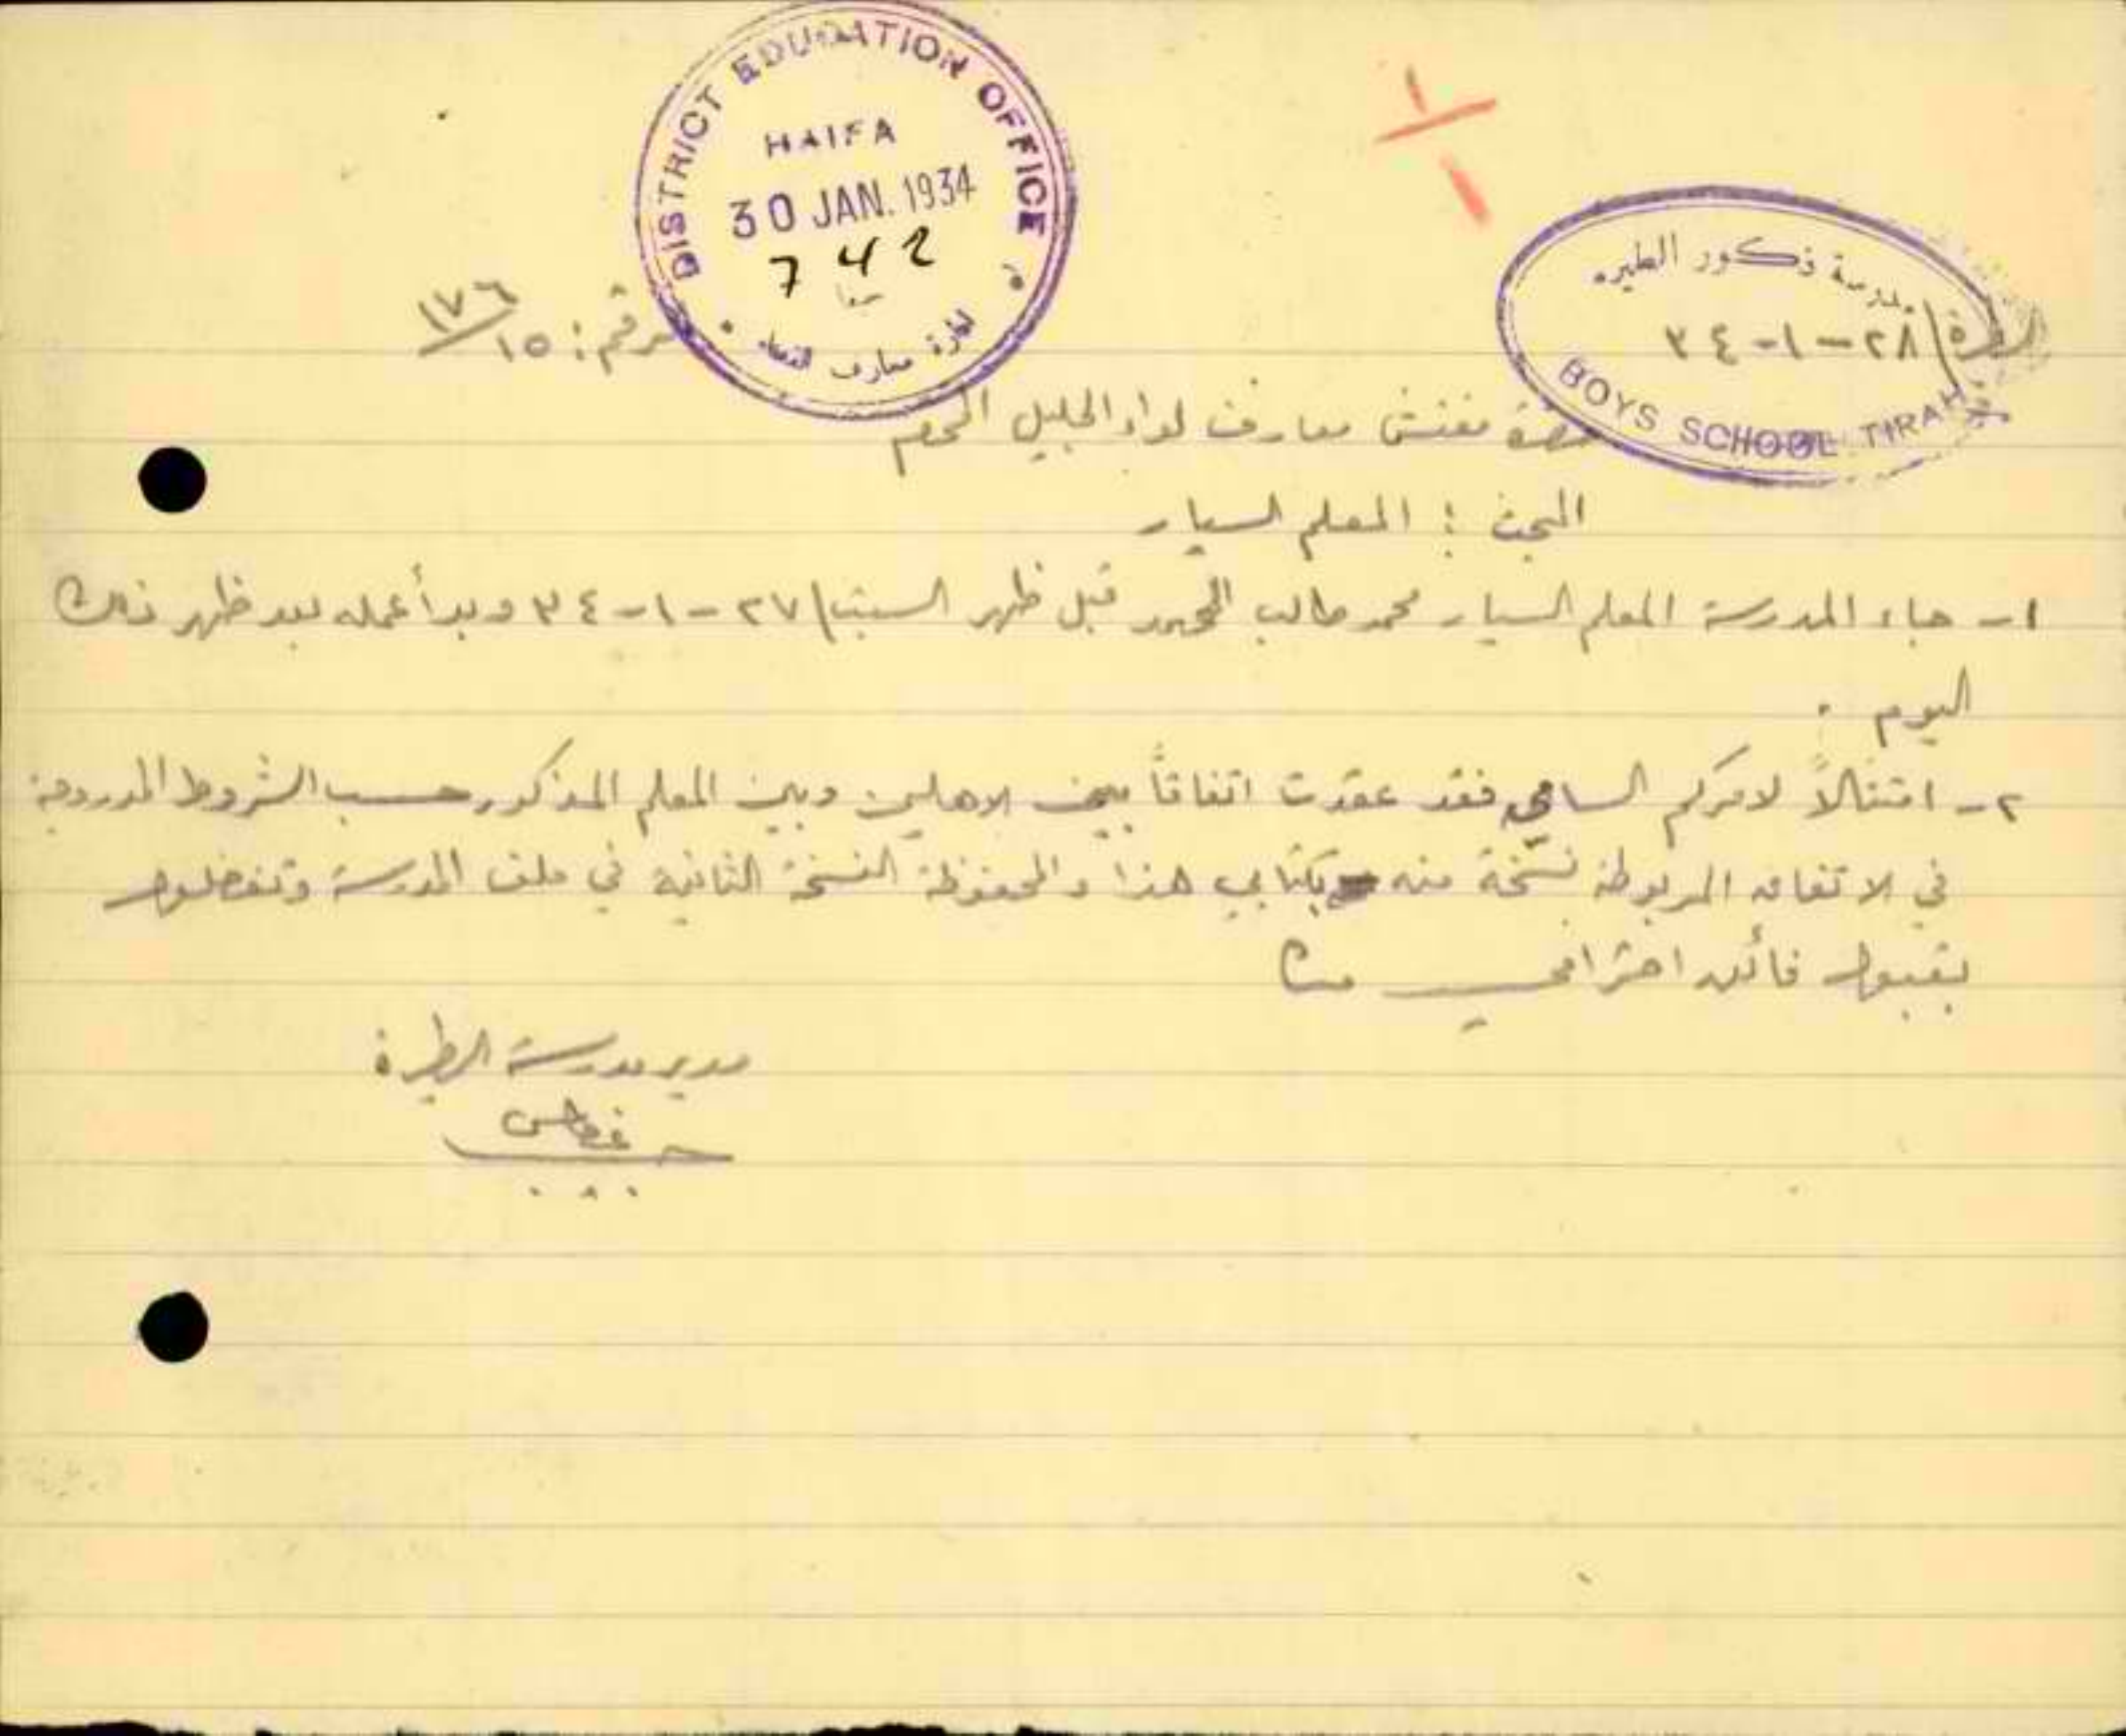 DISTRICT EDUCATION OFFICE
HAIFA
30 JAN. 1934
742
حيفا
معارف
مدرسة ذكور الطيره
الطيرة / ٢٨-١-٣٤
BOYS SCHOOL TIRAH
رقم : ١٥/١٧٦
حضرة مفتش معارف لواء الجليل المحترم
البحث : المعلم السيار
١- جاء المدرسة المعلم السيار محمد طالب قبل ظهر السبت / ٢٧-١-٣٤ وبدأ عمله بعد ظهر ذلك
اليوم .
٢- امتثالاً لامركم السامي فقد عقدت اتفاقاً بين الاهلين وبين المعلم المذكور حسب الشروط المدرجة
في الاتفاق المربوطة نسخة منه بكتابي هذا والمحفوظة النسخة الثانية في ملف المدرسة وتفضلوا
بقبول فائق احترامي
مدير مدرسة الطيرة